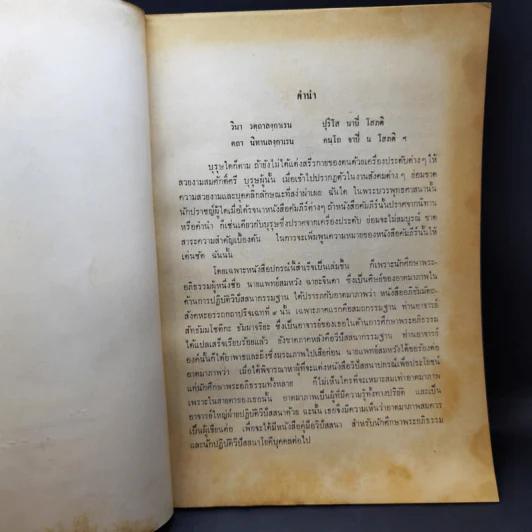 คำนำ
วินา วตฺถาลงฺกาเรน ปุริโส นานี โสภติ
ตถา นิทานลงฺกาเรน คนฺโถ จาปี น โสภติ ฯ
บุรุษใดก็ตาม ถ้ายังไม่ได้แต่งสรีรกายของตนด้วยเครื่องประดับต่างๆ ให้
สวยงามสมศักดิ์ศรี บุรุษผู้นั้น เมื่อเข้าไปปรากฏตัวในงานสังคมต่างๆ ย่อมขาด
ความสวยงามและบุคคลิกลักษณะที่สง่าผ่าเผย ฉันใด ในพระบวรพุทธศาสนานั้น
นักปราชญ์ผู้ใดเมื่อได้รจนาหนังสือคัมภีร์ต่างๆ ถ้าหนังสือคัมภีร์นั้นปราศจากนิทาน
หรือคำนำ ก็เช่นเดียวกับบุรุษซึ่งปราศจากเครื่องประดับ ย่อมจะไม่สมบูรณ์ ขาด
สาระความสำคัญเบื้องต้น ในการจะเพิ่มพูนความหมายของหนังสือคัมภีร์นั้นให้
เด่นชัด ฉันนั้น
โดยเฉพาะหนังสือปกรณ์นี้สำเร็จเป็นเล่มขึ้น ก็เพราะนักศึกษาพระ-
อภิธรรมผู้หนึ่งชื่อ นายแพทย์สมหวัง ฉายะจินดา ซึ่งเป็นศิษย์ของอาตมาภาพใน
ด้านการปฏิบัติวิปัสสนากรรมฐาน ได้ปรารภกับอาตมาภาพว่า หนังสืออภิธัมมัตถ-
สังคหะอรรถกถาปริจเฉทที่ ๙ นั้น เฉพาะภาคแรกคือสมถกรรมฐาน ท่านอาจารย์
สัทธัมมโชติกะ ธัมมาจริยะ ซึ่งเป็นอาจารย์ของเธอในด้านการศึกษาพระอภิธรรม
ได้แปลเสร็จเรียบร้อยแล้ว ยังขาดภาคหลังคือวิปัสสนากรรมฐาน ท่านอาจารย์
องค์นั้นก็ได้อาพาธและยิ่งซึ่งมรณภาพไปเสียก่อน นายแพทย์สมหวังได้ขอร้องต่อ
อาตมาภาพว่า เมื่อได้พิจารณาหาผู้ที่จะแต่งหนังสือวิปัสสนาปกรณ์เพื่อประโยชน์
แก่นักศึกษาพระอภิธรรมทั้งหลาย ก็ไม่เห็นใครที่จะเหมาะสมเท่าอาตมาภาพ
เพราะในสายตาของเธอนั้น อาตมาภาพเป็นผู้ที่มีความรู้ทั้งทางปริยัติ และเป็น
อาจารย์ใหญ่ฝ่ายปฏิบัติวิปัสสนาด้วย ฉะนั้น เธอจึงมีความเห็นว่าอาตมาภาพสมควร
เป็นผู้เขียนต่อ เพื่อจะได้มีหนังสือคู่มือวิปัสสนา สำหรับนักศึกษาพระอภิธรรม
และนักปฏิบัติวิปัสสนาโยคีบุคคลต่อไป